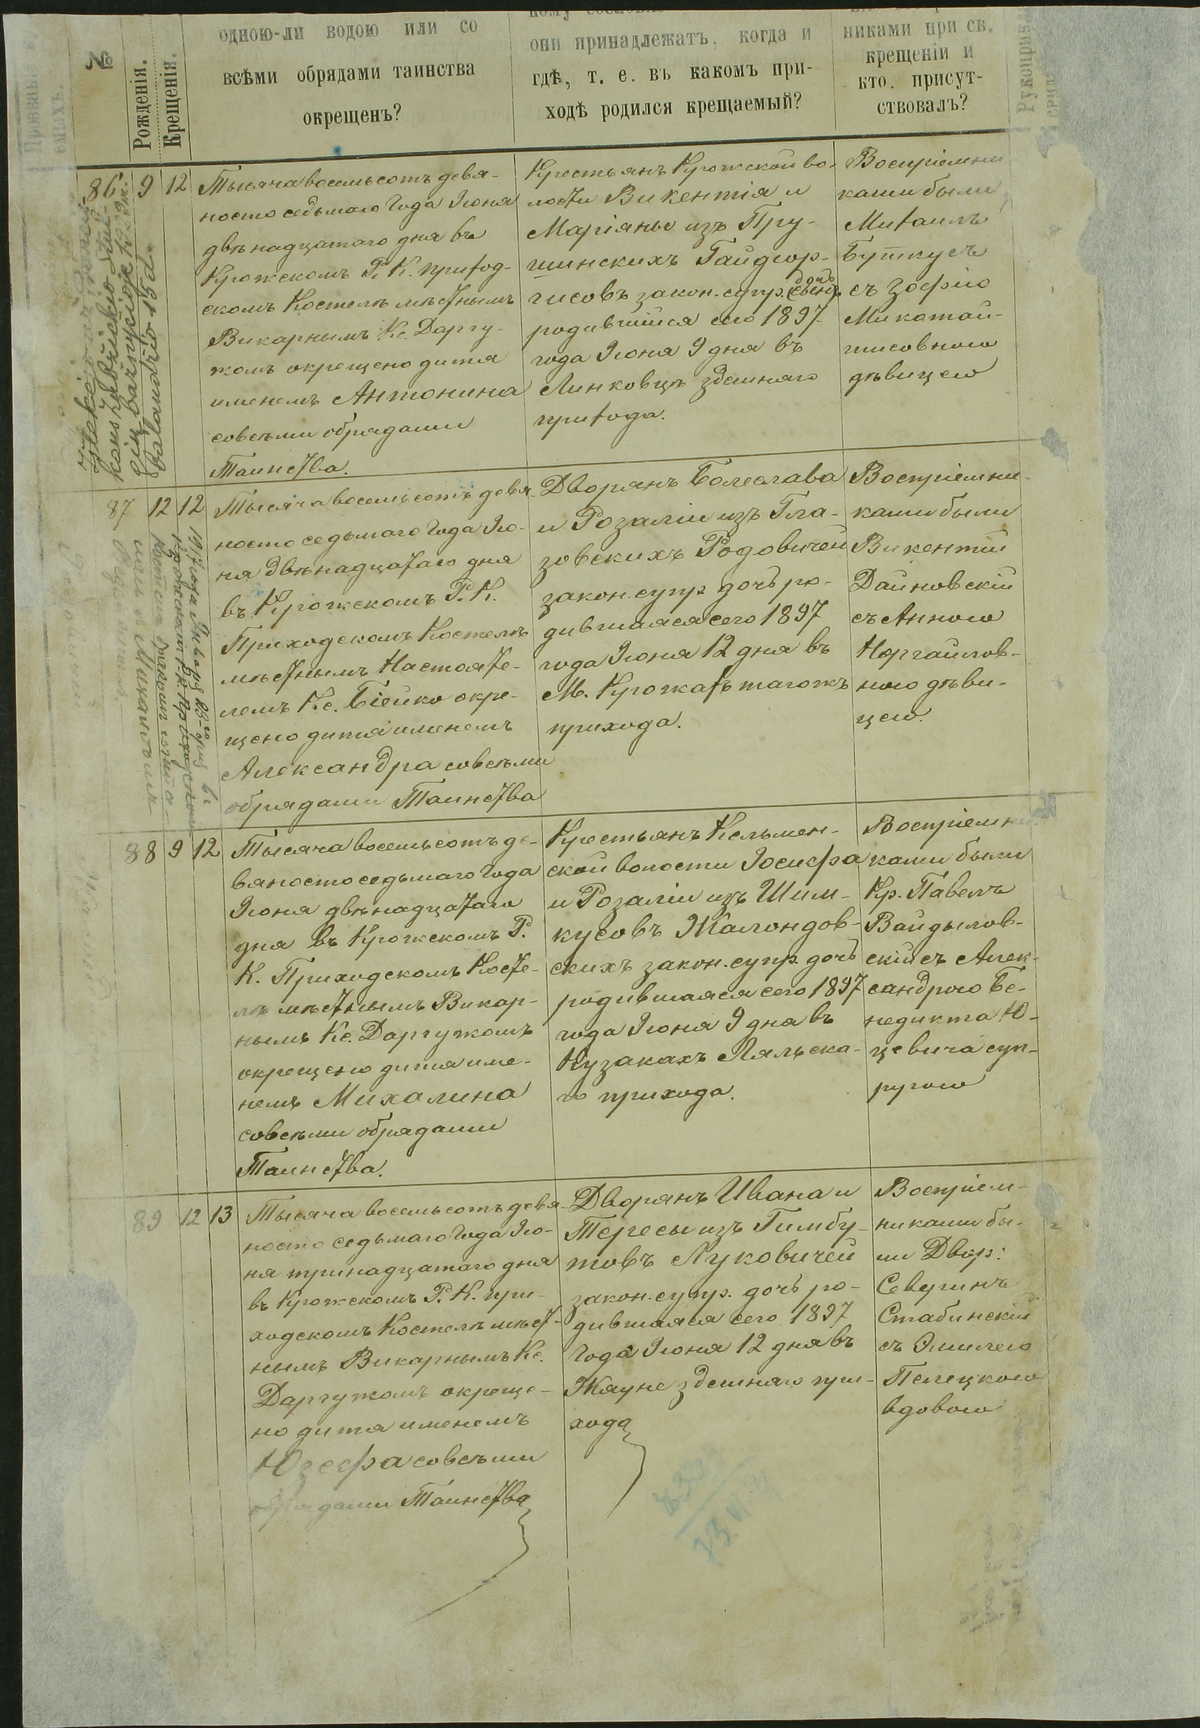 №
Рожденія.
Крещенія.
одною-ли водою или со
всѣми обрядами таинства
окрещенъ?
они принадлежатъ, когда и
гдѣ, т. е. въ какомъ при-
ходѣ родился крещаемый?
никами при св.
крещеніи и
кто присут-
ствовалъ?
86 9 12
Тысяча восемьсотъ девя-
носто седьмаго Года Іюня
двѣнадцатаго дня въ
Крожскомъ Р. К. приход-
скомъ Костелѣ мѣстнымъ
Викарнымъ Кс. Даргу-
жомъ окрещено дитя
именемъ Антонина
совсѣми обрядами
Таинства.
Крестьянъ Крожской во-
лости Викентія и
Маріяны изъ Пру-
шинскихъ Гайдюр-
гисовъ закон. супр. дочь
родившійся сего 1897
года Іюня 9 дня въ
Линковцъ здешняго
прихода.
Воспріемни
ками были
Михаилъ
Буткусъ
съ Зофіею
Микотай-
тисовною
дѣвицею
87 12 12
Тысяча восемьсотъ девя-
носто седьмаго Года Ію-
ня двѣнадцатаго дня
въ Крожскомъ Р. К.
Приходскомъ Костелѣ
мѣстнымъ Настояте-
лемъ Кс. Бейко окре-
щено дитя именемъ
Александра совсѣми
обрядами Таинства
Дворянъ Болеслава
и Розаліи изъ Гла-
зовскихъ Родовичей
закон. супр. дочь ро-
дившаяся сего 1897
года Іюня 12 дня въ
М. Крожахъ тагожъ
прихода.
Воспріемни-
ками были
Викентій
Дайновскій
съ Анною
Норгайлов-
ною дѣви-
цею.
88 9 12
Тысяча восемьсотъ де-
вяносто седьмаго Года
Іюня двѣнадцатаго
дня въ Крожскомъ Р.
К. Приходскомъ Косте-
лѣ мѣстнымъ Викар-
нымъ Кс. Даргужомъ
окрещено дитя име-
немъ Михалина
совсѣми обрядами
Таинства.
Крестьянъ Кельмен-
ской волости Іосифа
и Розаліи изъ Шим-
кусовъ Жалондов-
скихъ закон. супр. дочь
родившаяся сего 1897
года Іюня 9 дня въ
Кузакахъ Ляльска-
го прихода.
Воспріемни
ками были
Кр. Павелъ
Вайдылов-
скій съ Алек-
сандрою Бе-
недикта Ю-
цевича суп-
ругою
89 12 13
Тысяча восемьсотъ девя-
носто седьмаго Года Ію-
ня тринадцатаго дня
въ Крожскомъ Р. К. при-
ходскомъ Костелѣ мѣст-
нымъ Викарнымъ Кс.
Даргужомъ окреще-
но дитя именемъ
Юзефа совсѣми
обрядами Таинства
Дворянъ Ивана и
Тересы изъ Гимбу-
товъ Луковичей
закон. супр. дочь ро-
дившаяся сего 1897
Года Іюня 12 дня въ
Жауне здешняго при-
хода
Воспріем-
никами бы-
ли Двор:
Северинъ
Стабинскій
съ Эмилею
Пелецкою
вдовою